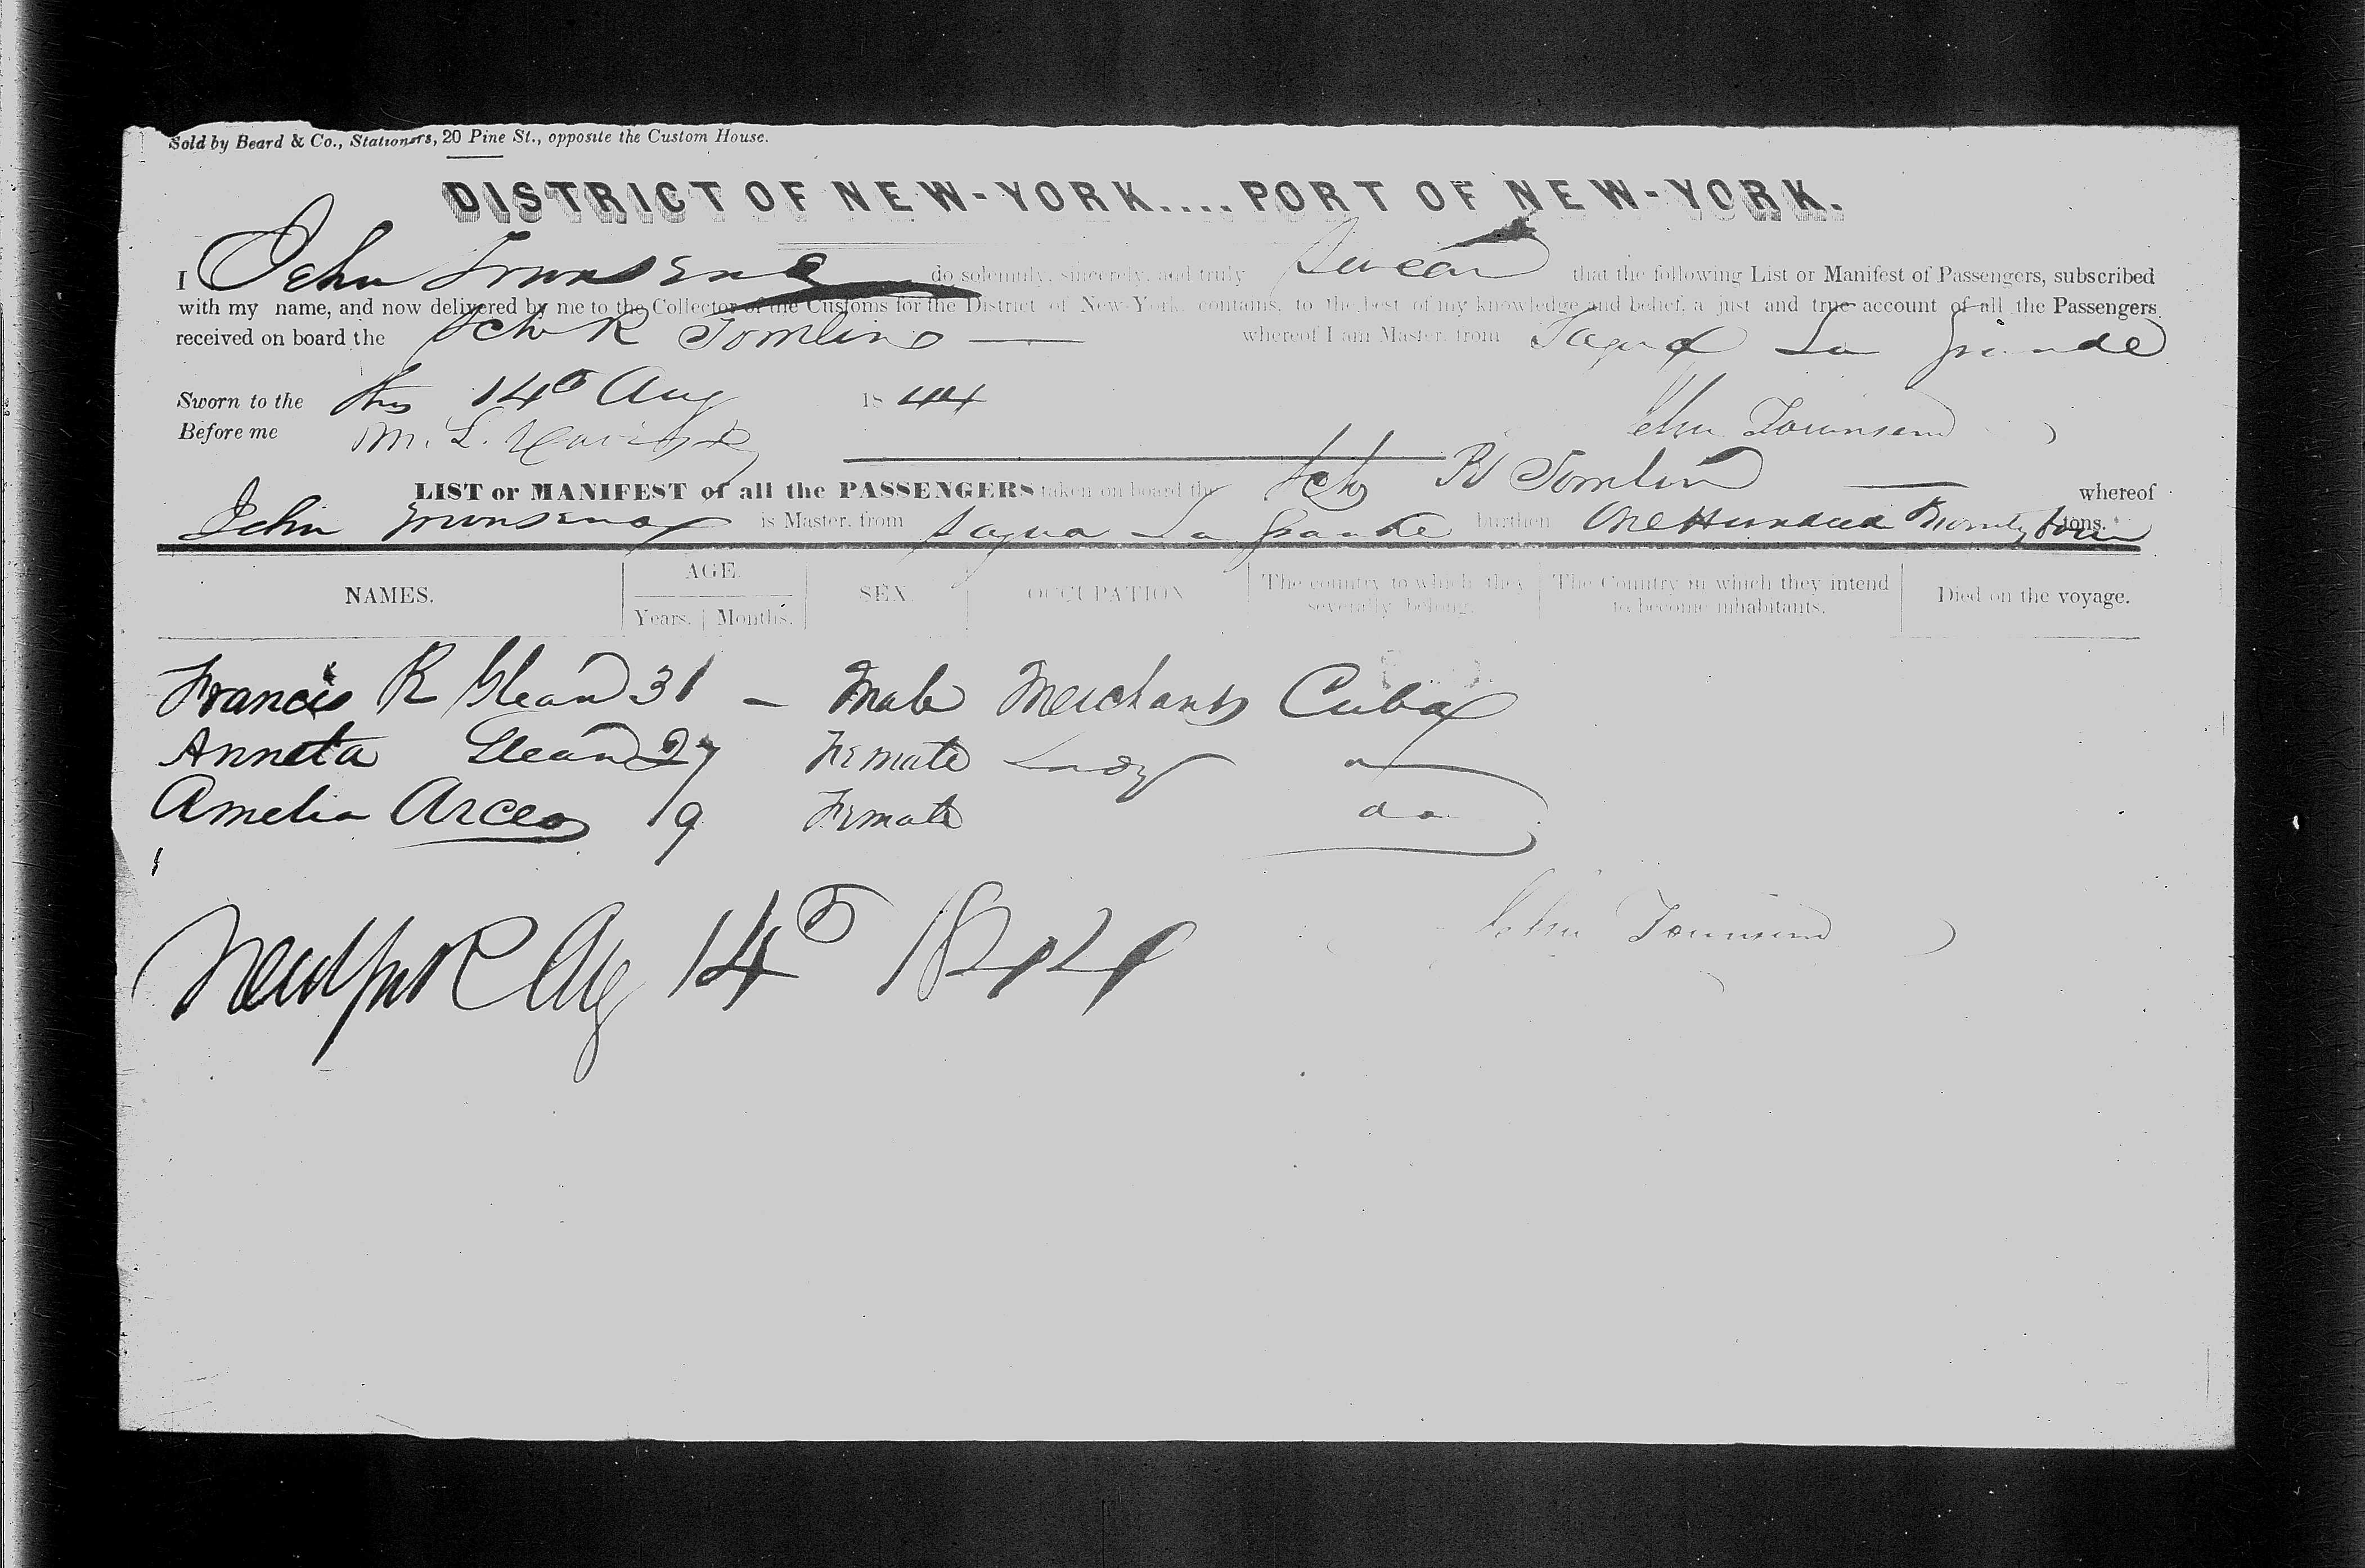 Sold by Beard & Co., Stationers, 20 Pine St., opposite the Custom House.
DISTRICT OF NEW-YORK....PORT OF NEW-YORK.
I John Townsend do solemnly, sincerely, and truly Swear that the following List or Manifest of Passengers, subscribed
with my name, and now delivered by me to the Collector of the Customs for the District of New-York, contains, to the best of my knowledge and belief, a just and true account of all the Passengers
received on board the Schr R Tomlin whereof I am Master, from Sagua La Grande
Sworn to the this 14th Aug 1844
Before me M. L.
John Townsend
LIST or MANIFEST of all the PASSENGERS taken on board the Schr R Tomlin whereof
John Townsend is Master, from Sagua La Grande burthen One Hundred Twenty four tons.
NAMES. AGE. SEX. OCCUPATION The country to which they severally belong. The Country in which they intend to become inhabitants. Died on the voyage.
Years. Months.
Francis R Glean 31 – Male Merchant Cuba
Anneta Glean 27 Female Lady
Amelia Arceo 19 Female do
New York Aug 14th 1844
John Townsend